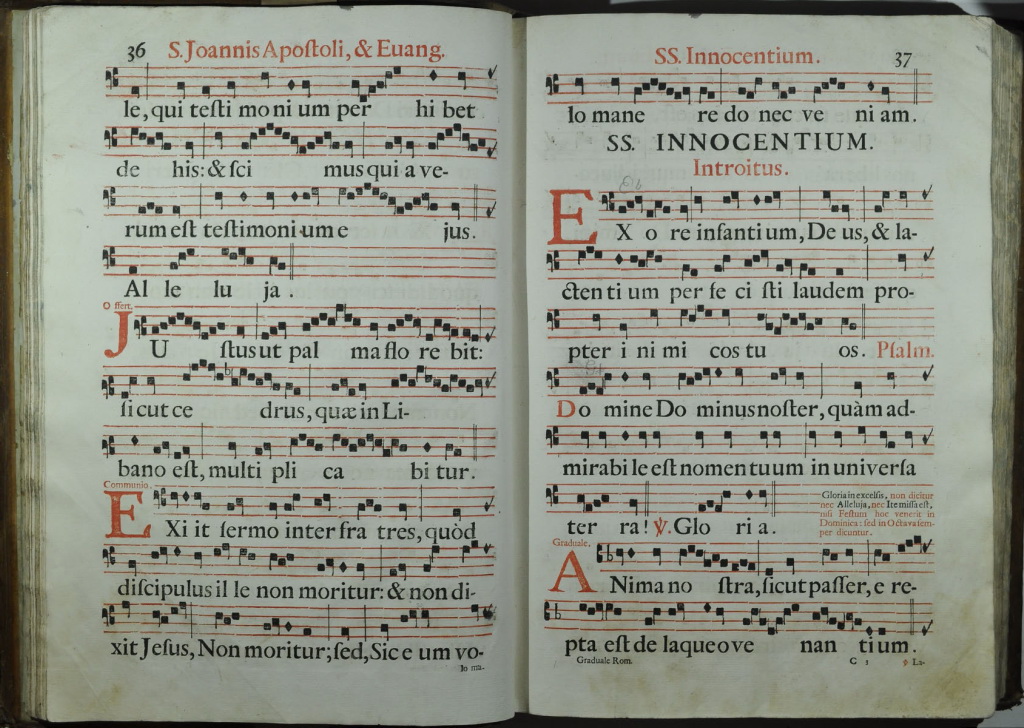 36 S. Joannis Apoſtoli, & Euang.
le, qui teſti mo ni um per hi bet
de his: & ſci mus qui a ve-
rum eſt teſtimoni um e jus.
Al le lu ja.
Offert.
JU ſtus ut pal ma flo re bit:
ſicut ce drus, quæ in Li-
bano eſt, multi pli ca bi tur.
Communio.
EXi it ſermo inter fra tres, quòd
diſcipulus il le non moritur: & non di-
xit Jeſus, Non moritur; ſed, Sic e um vo-
lo ma-
SS. Innocentium. 37
lo mane re do nec ve ni am.
SS. INNOCENTIUM.
Introitus.
EX o re infanti um, De us, & la-
cten ti um per fe ci ſti laudem pro-
pter i ni mi cos tu os. Pſalm.
Do mine Do minus noſter, quàm ad-
mirabi le eſt nomen tuum in univerſa
ter ra! ℣. Glo ri a.
Gloria in excelſis, non dicitur
nec Alleluja, nec Ite miſſa eſt,
niſi Feſtum hoc venerit in
Dominica: ſed in Octava ſem-
per dicuntur.
Graduale.
ANima no ſtra, ſicut paſſer, e re-
pta eſt de laqueo ve nan ti um.
Graduale Rom. C 3 ℣ La-